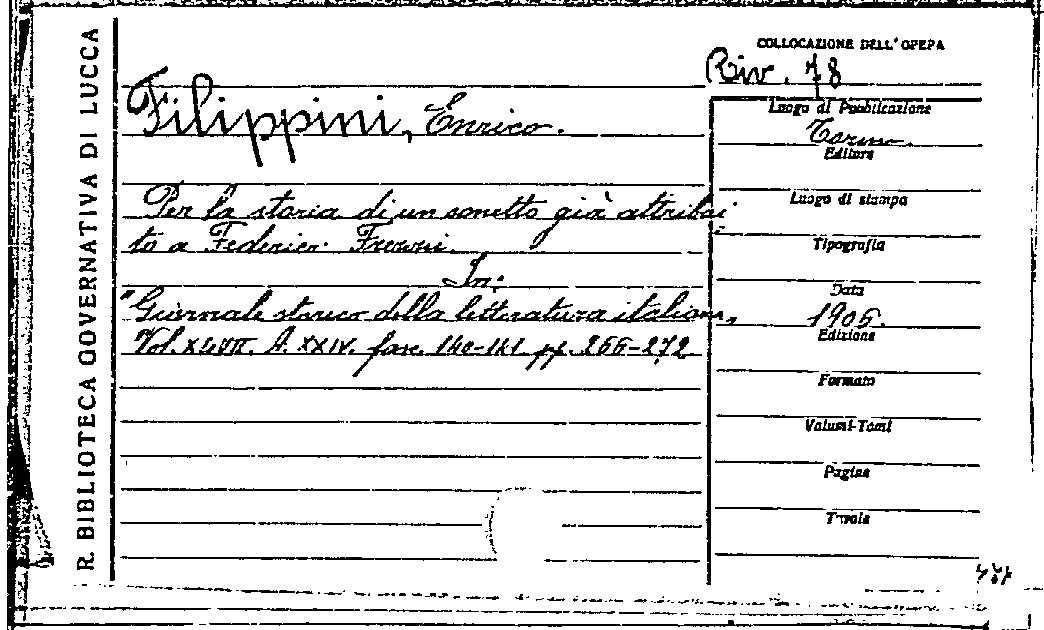 R. BIBLIOTECA GOVERNATIVA DI LUCCA
COLLOCAZIONE DELL'OPERA
Riv. 78
Filippini, Enrico.
Per la storia di un sonetto già attribui
to a Federico Frezzi.
In:
"Giornale storico della letteratura italiana,
Vol. XLVII. A. XXIV. fasc. 140-141. pp. 266-272
Luogo di Pubblicazione
Torino
Editore
Luogo di stampa
Tipografia
Data
1906.
Edizione
Formato
Volumi-Tomi
Pagine
Tavole